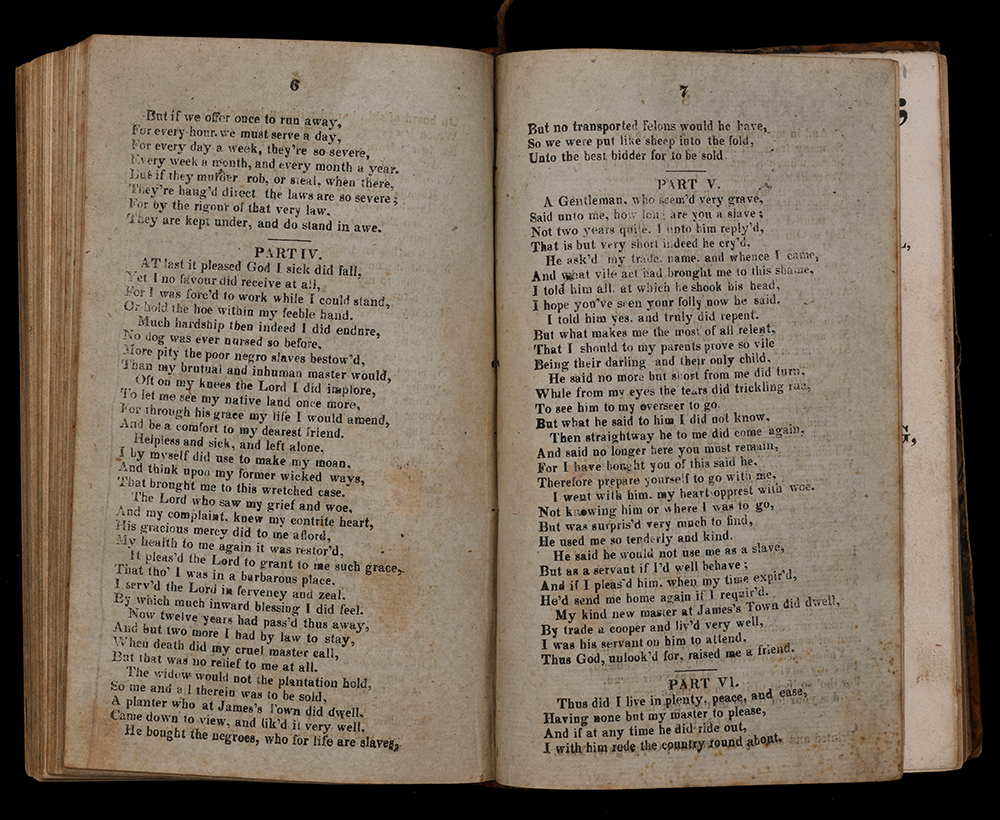 6
But if we offer once to run away,
For every hour we must serve a day,
For every day a week, they're so severe,
Every week a month, and every month a year.
But if they murder rob, or steal, when there,
They're hang'd direct the laws are so severe;
For by the rigour of that very law,
They are kept under, and do stand in awe.
PART IV.
AT last it pleased God I sick did fall,
Yet I no favour did receive at all,
For I was forc'd to work while I could stand,
Or hold the hoe within my feeble hand.
Much hardship then indeed I did endure,
No dog was ever nursed so before,
More pity the poor negro slaves bestow'd,
Than my brutual and inhuman master would,
Oft on my knees the Lord I did implore,
To let me see my native land once more,
For through his grace my life I would amend,
And be a comfort to my dearest friend.
Helpless and sick, and left alone,
I by myself did use to make my moan,
And think upon my former wicked ways,
That brought me to this wretched case.
The Lord who saw my grief and woe,
And my complaint, knew my contrite heart,
His gracious mercy did to me afford,
My health to me again it was restor'd,
It pleas'd the Lord to grant to me such grace,
That tho' I was in a barbarous place.
I serv'd the Lord in fervency and zeal.
By which much inward blessing I did feel.
Now twelve years had pass'd thus away,
And but two more I had by law to stay,
When death did my cruel master call,
But that was no relief to me at all.
The widow would not the plantation hold,
So me and all therein was to be sold,
A planter who at James's Town did dwell,
Came down to view, and lik'd it very well,
He bought the negroes, who for life are slaves,
7
But no transported felons would he have,
So we were put like sheep into the fold,
Unto the best bidder for to be sold.
PART V.
A Gentleman, who seem'd very grave,
Said unto me, how long are you a slave;
Not two years quite. I unto him reply'd,
That is but very short indeed he cry'd.
He ask'd my trade. name. and whence I came,
And what vile act had brought me to this shame,
I told him all. at which he shook his head,
I hope you've seen your folly now he said.
I told him yes. and truly did repent.
But what makes me the most of all relent,
That I should to my parents prove so vile
Being their darling and their only child.
He said no more but short from me did turn,
While from my eyes the tears did trickling run,
To see him to my overseer to go.
But what he said to him I did not know.
Then straightway he to me did come again,
And said no longer here you must remain,
For I have bought you of this said he,
Therefore prepare yourself to go with me.
I went with him. my heart opprest with woe.
Not knowing him or where I was to go,
But was surpris'd very much to find,
He used me so tenderly and kind.
He said he would not use me as a slave,
But as a servant if I'd well behave;
And if I pleas'd him, when my time expir'd,
He'd send me home again if I requir'd.
My kind new master at James's Town did dwell,
By trade a cooper and liv'd very well,
I was his servant on him to attend.
Thus God, unlook'd for, raised me a friend.
PART VI.
Thus did I live in plenty, peace, and ease,
Having none but my master to please,
And if at any time he did ride out,
I with him rode the country round about.